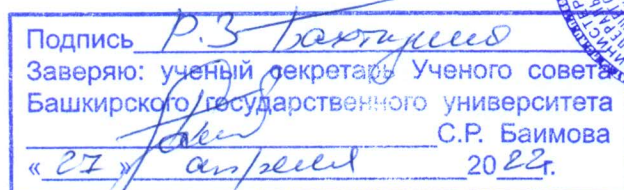 Подпись Р.З. Бахтизина
Заверяю: ученый секретарь Ученого совета
Башкирского государственного университета
С.Р. Баимова
« 27 » апреля 2022г.